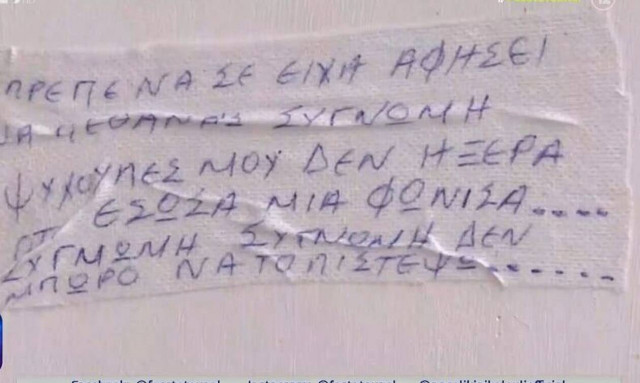 ΠΡΕΠΕ ΝΑ ΣΕ ΕΙΧΑ ΑΦΗΣΕΙ
ΝΑ ΠΕΘΑΝΑΣ ΣΥΓΝΩΜΗ
ΨΥΧΟΥΛΕΣ ΜΟΥ ΔΕΝ ΗΞΕΡΑ
ΟΤΙ ΕΣΩΣΑ ΜΙΑ ΦΩΝΙΣΑ....
ΣΥΓΜΩΜΗ ΣΥΓΝΩΜΗ ΔΕΝ
ΜΠΩΡΟ ΝΑ ΤΟ ΠΙΣΤΕΨΩ.......